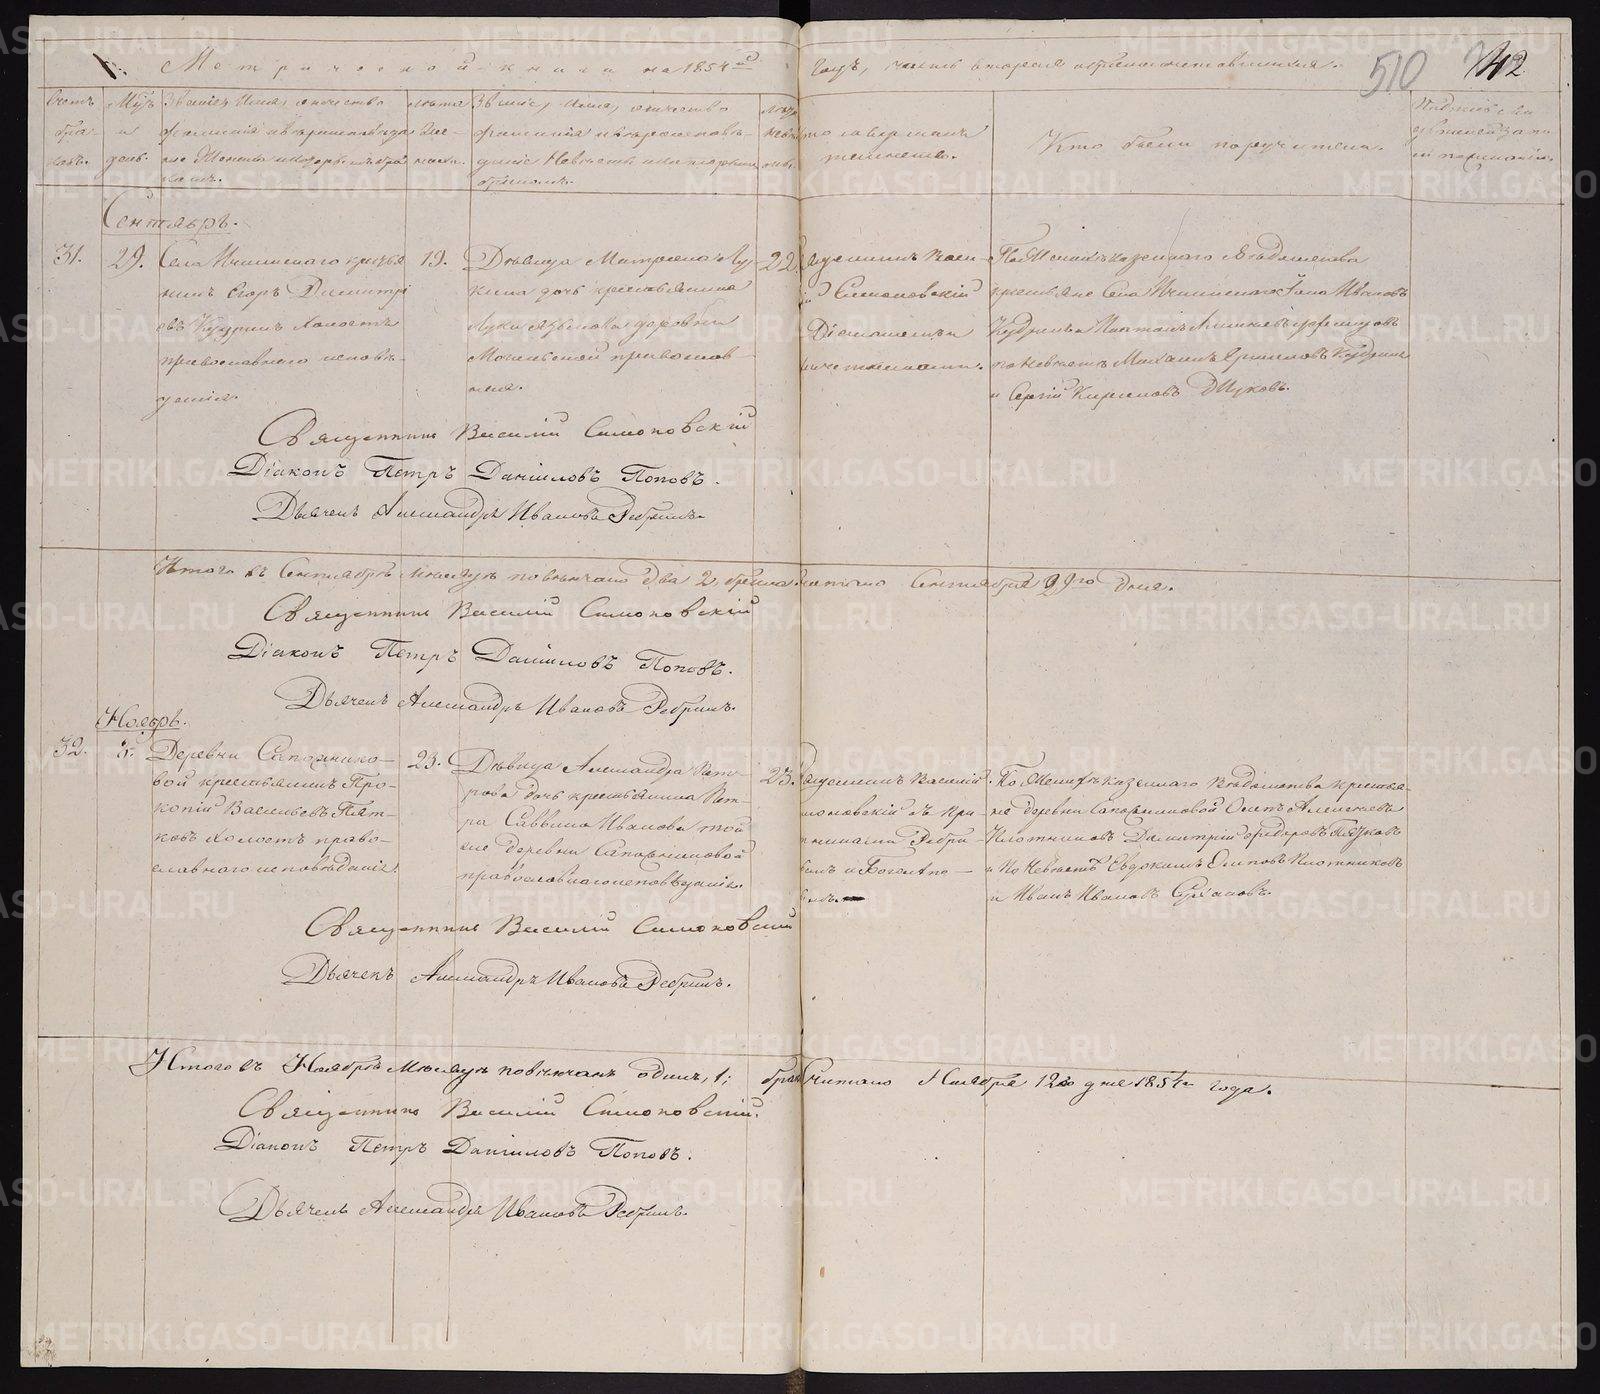 Метрической книги на 1854й годъ, часть вторая о бракосочетавшихся.
510
42
Счетъ браковъ.
Мѣсяцъ и день.
Званіе, имя, отчество, фамилія и вѣроисповѣданіе Жениха и которымъ бракомъ.
лѣта Жениха.
Званіе, имя, отчество, фамилія и вѣроисповѣданіе Невѣсты и которымъ бракомъ.
лѣта Невѣсты.
Кто совершалъ таинство.
Кто были поручители.
Сентябрь.
31. 29.
Села крестья
нинъ Егоръ Димитрі
евъ Кудринъ холостъ
православнаго исповѣ-
данія.
19.
Дѣвица Матрона Лу-
кина дочь крестьянина
Луки деревни
православ
ная.
22
Священникъ Васи-
ій Симоновскій
Діакономъ и
причетниками.
По Женихѣ казеннаго вѣдомства
крестьяне Села Иванъ Ивановъ
Кудринъ и
по Невѣстѣ Михаилъ Кудринъ
и Сергій Кириловъ
Священникъ Василій Симоновскій
Діаконъ Петръ Даніиловъ Поповъ.
Дьячекъ Александръ Ивановъ Ребринъ.
Итого въ Сентябрѣ Мѣсяцѣ повѣнчано два 2, брака. читано Сентября 29го дня.
Священникъ Василій Симоновскій
Діаконъ Петръ Даніиловъ Поповъ.
Дьячекъ Александръ Ивановъ Ребринъ.
Ноябрь.
32. 3.
Деревни Сапожнико-
вой крестьянинъ Про-
копій Васильевъ Пят-
ковъ холостъ право-
славнаго исповѣданія.
23.
Дѣвица Александра Пет-
рова дочь крестьянина Пет-
ра Саввина Иванова той
же деревни Сапожниковой
православнаго исповѣданія.
23.
Священникъ Василій
Симоновскій съ при-
чтниками Ребри-
нымъ и
По Женихѣ казеннаго вѣдомства крестья-
не деревни Сапожниковой Осипъ Алексѣевъ
Плотниковъ Димитрій Федоровъ Пятковъ
и по Невѣстѣ Евдокимъ Осиповъ Плотниковъ
и Иванъ Ивановъ
Священникъ Василій Симоновскій
Дьячекъ Александръ Ивановъ Ребринъ.
Итого въ Ноябрѣ Мѣсяцѣ повѣнчанъ одинъ, 1, бракъ читано Ноября 12го дня 1854го года.
Священникъ Василій Симоновскій.
Діаконъ Петръ Даніиловъ Поповъ.
Дьячекъ Александръ Ивановъ Ребринъ.
METRIKI.GASO-URAL.RU